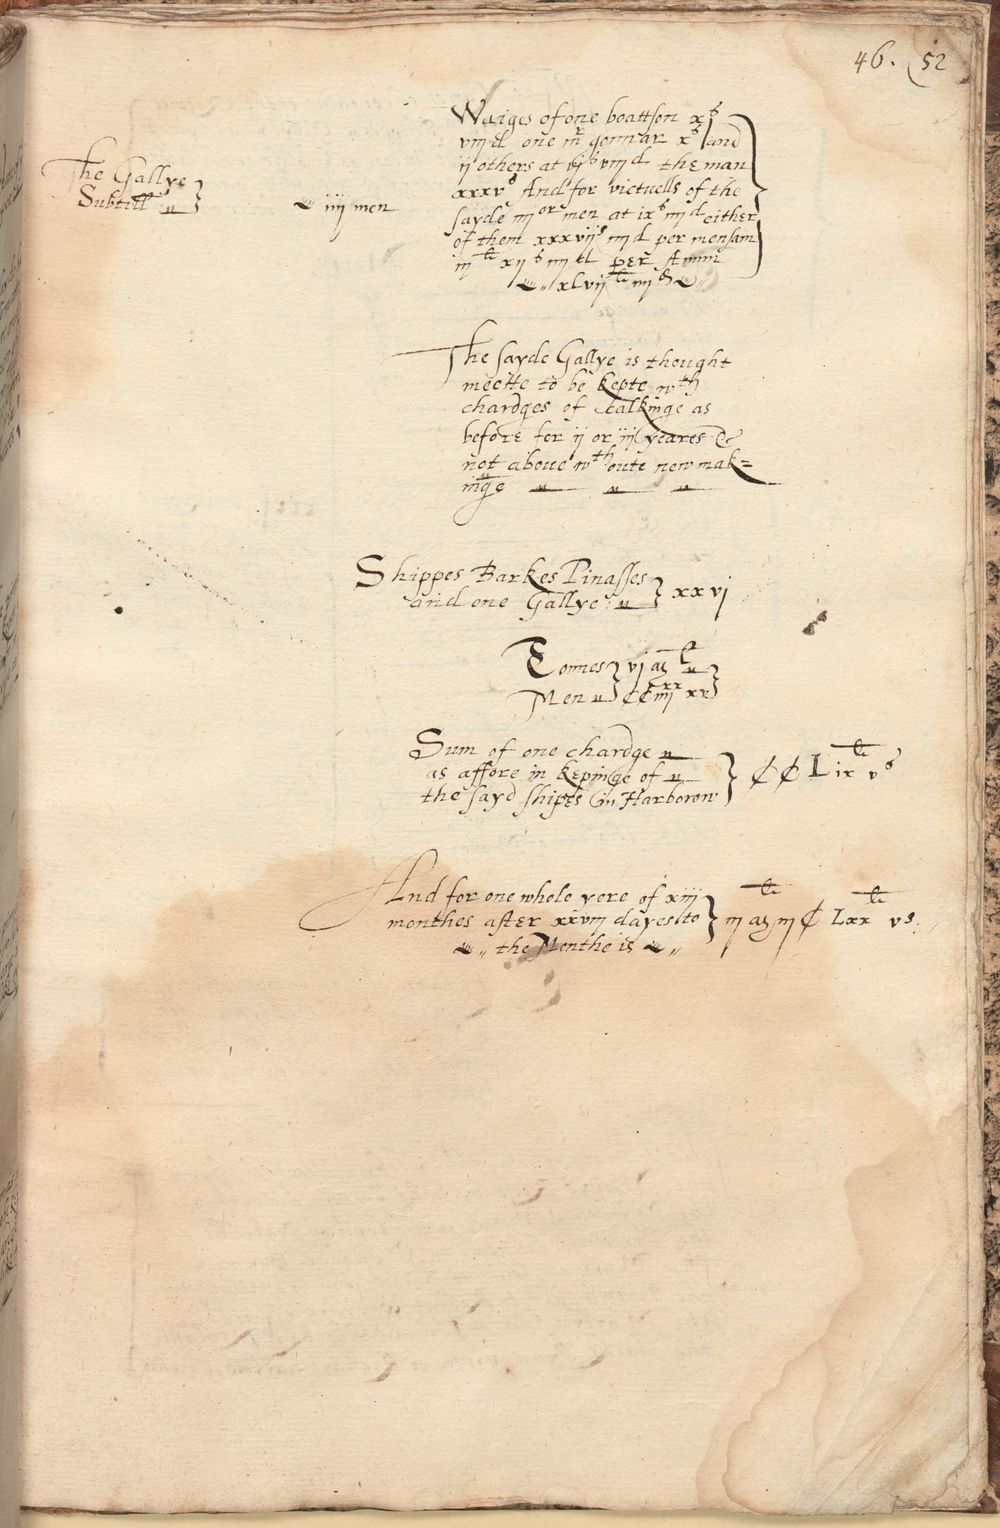 46. 52
The Gallye
Subtill
iiij men
Waiges of one boattson xs
viijd one mr gonnar xs and
ij others at vjs viijd the man
xxxvs And for victuells of the
sayde iiijor men at ixs iiijd either
of them xxxvijs iiijd per mensam
iijli xijs iiijd per Annu
xlvijli iiijs
The sayde Gallye is thought
meette to be kepte wth
chardges of Calkinge as
before for ij or iij yeares &
not aboue wthoute new mak=
inge
Shippes Barkes Pinasses
and one Gallye xxvj
Tonnes vj
Men CC iiijxx xv
Sum of one chardge
as affore in kepinge of
the sayd shipes in Harborow
CCLixli vs
And for one whole yere of xiij
monthes after xxviij dayes to
the Monthe is
iij iij C Lxxli vs